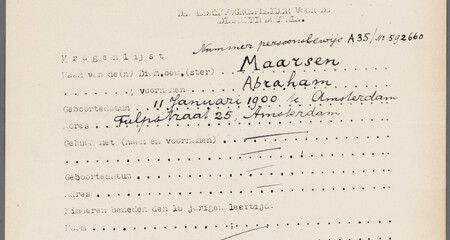 Nummer persoonsbewijs A35/№592660
Vragenlijst
Naam van de(n) Dienaar(ster) Maarsen
; voornamen Abraham
Geboortedatum 11 Januari 1900 te Amsterdam
Adres Tulpstraat 25, Amsterdam
Gehuwd met (naam en voornamen)
Geboortedatum
Adres
Kinderen beneden den 16 jarigen leeftijd:
Naam